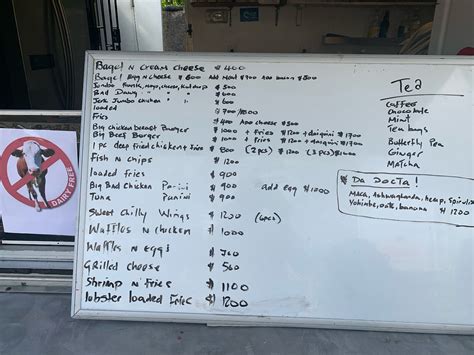 Bagel N cream cheese $ 400
Bagel Egg n cheese $ 600 Add meat $ 900 Add banana $ 500
Jumbo Franks, cheese, $ 500
Bad Dawg " " $ 600
Jerk Jumbo chicken " $ 600
loaded $ 700/1800
Fries $ 400 Add cheese $ 500
Big chicken breast Burger $ 1000 + fries $ 1200 + daiquiri $ 1700
Big Beef Burger $ 1000 + fries $ 1200 + daiquiri $ 1400
1 pc deep fried chicken + fries $ 800 (2pcs) $ 1200 (3pcs) $ 1600
Fish N chips $ 1200
loaded fries $ 900
Big Bad Chicken Panini $ 900 add egg $ 1000
Tuna Panini $ 900
Sweet Chilly Wings $ 1200 (6pcs)
Waffles N chicken $ 1000
Waffles N eggs $ 700
Grilled cheese $ 500
Shrimp N Fries $ 1100
lobster loaded Fries $ 1200
Tea
Coffee
chocolate
Mint
Tea bags
Butterfly Pea
Ginger
Matcha
DA DOCTA!
Maca, Ashwagandha, hemp, Spirulina
Yohimbe, oats, banana $ 1200
DAIRY FREE